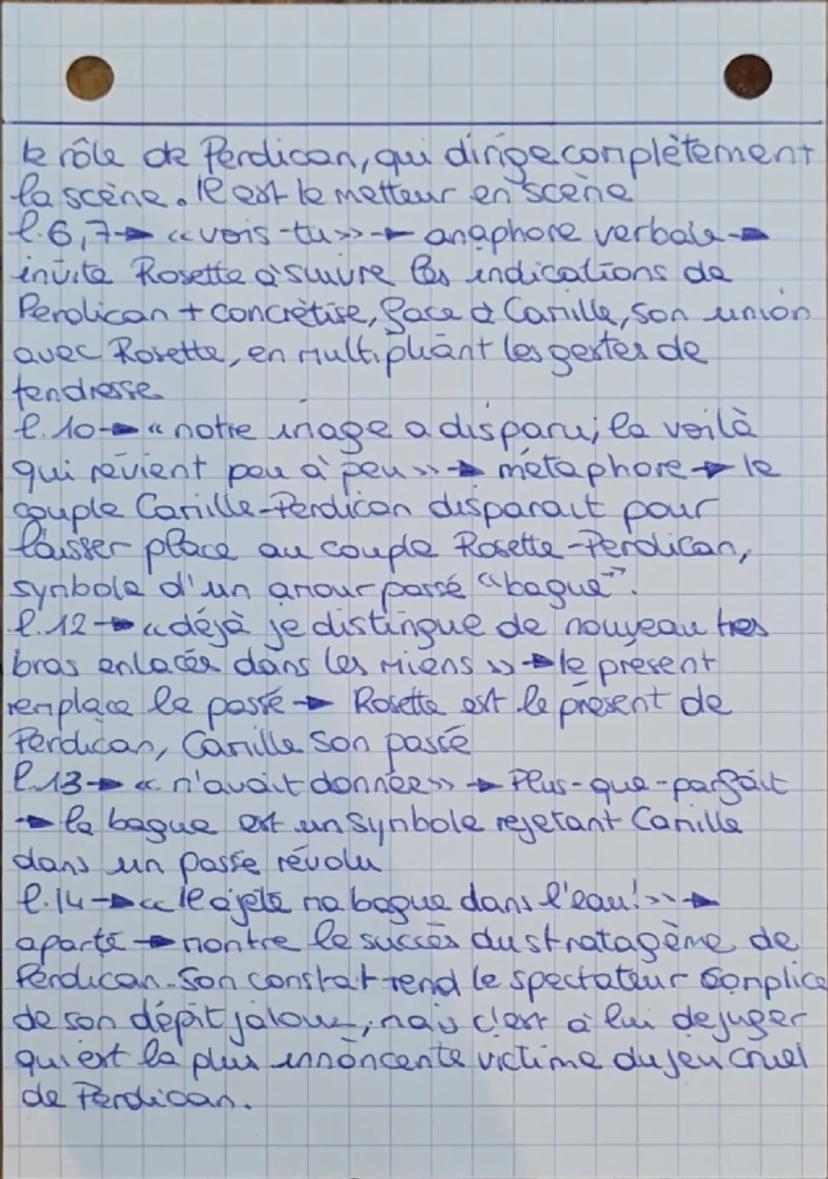 le rôle de Perdican, qui dirige complètement
la scène. Il est le metteur en scène
l.6,7 → « vois-tu » → anaphore verbale →
invite Rosette à suivre les indications de
Perdican + concrétise, face à Camille, son union
avec Rosette, en multipliant les gestes de
tendresse
l.10 → « notre image a disparu ; la voilà
qui revient peu à peu » → métaphore → le
couple Camille-Perdican disparait pour
laisser place au couple Rosette-Perdican,
symbole d'un amour passé "bague".
l.12 → « déjà je distingue de nouveau tes
bras enlacés dans les miens » → le présent
remplace le passé → Rosette est le présent de
Perdican, Camille son passé
l.13 → « m'avait donnée » → Plus-que-parfait
→ la bague est un symbole rejetant Camille
dans un passé révolu
l.14 → « Il a jeté ma bague dans l'eau ! » →
aparté → montre le succès du stratagème de
Perdican. Son constat rend le spectateur complice
de son dépit jaloux, mais c'est à lui de juger
qui est la plus innocente victime du jeu cruel
de Perdican.